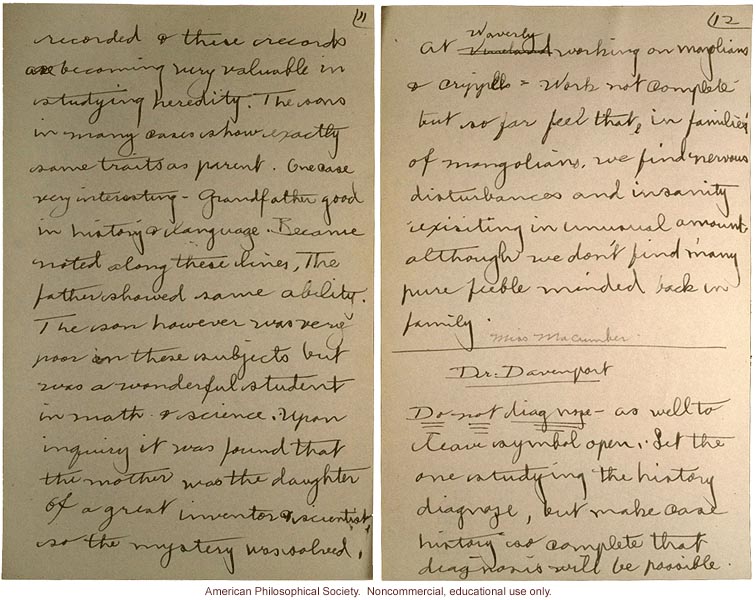 11
recorded & these records
are becoming very valuable in
studying heredity. The sons
in many cases show exactly
same traits as parent. One case
very interesting - Grandfather good
in history & language. Became
noted along these lines, The
father showed same ability.
The son however was very
poor in these subjects but
was a wonderful student
in math & science. Upon
inquiry it was found that
the mother was the daughter
of a great inventor & scientist,
so the mystery was solved.
12
Waverly
At Vineland working on mongolians
& cripples - Work not complete
but so far feel that, in families
of mongolians, we find nervous
disturbances and insanity
existing in unusual amount
although we don't find many
pure feeble minded back in
family.
Miss Macumber
Dr. Davenport
Do not diagnose - as well to
leave symbol open. Let the
one studying the history
diagnose, but make case
history so complete that
diagnosis will be possible.
American Philosophical Society. Noncommercial, educational use only.